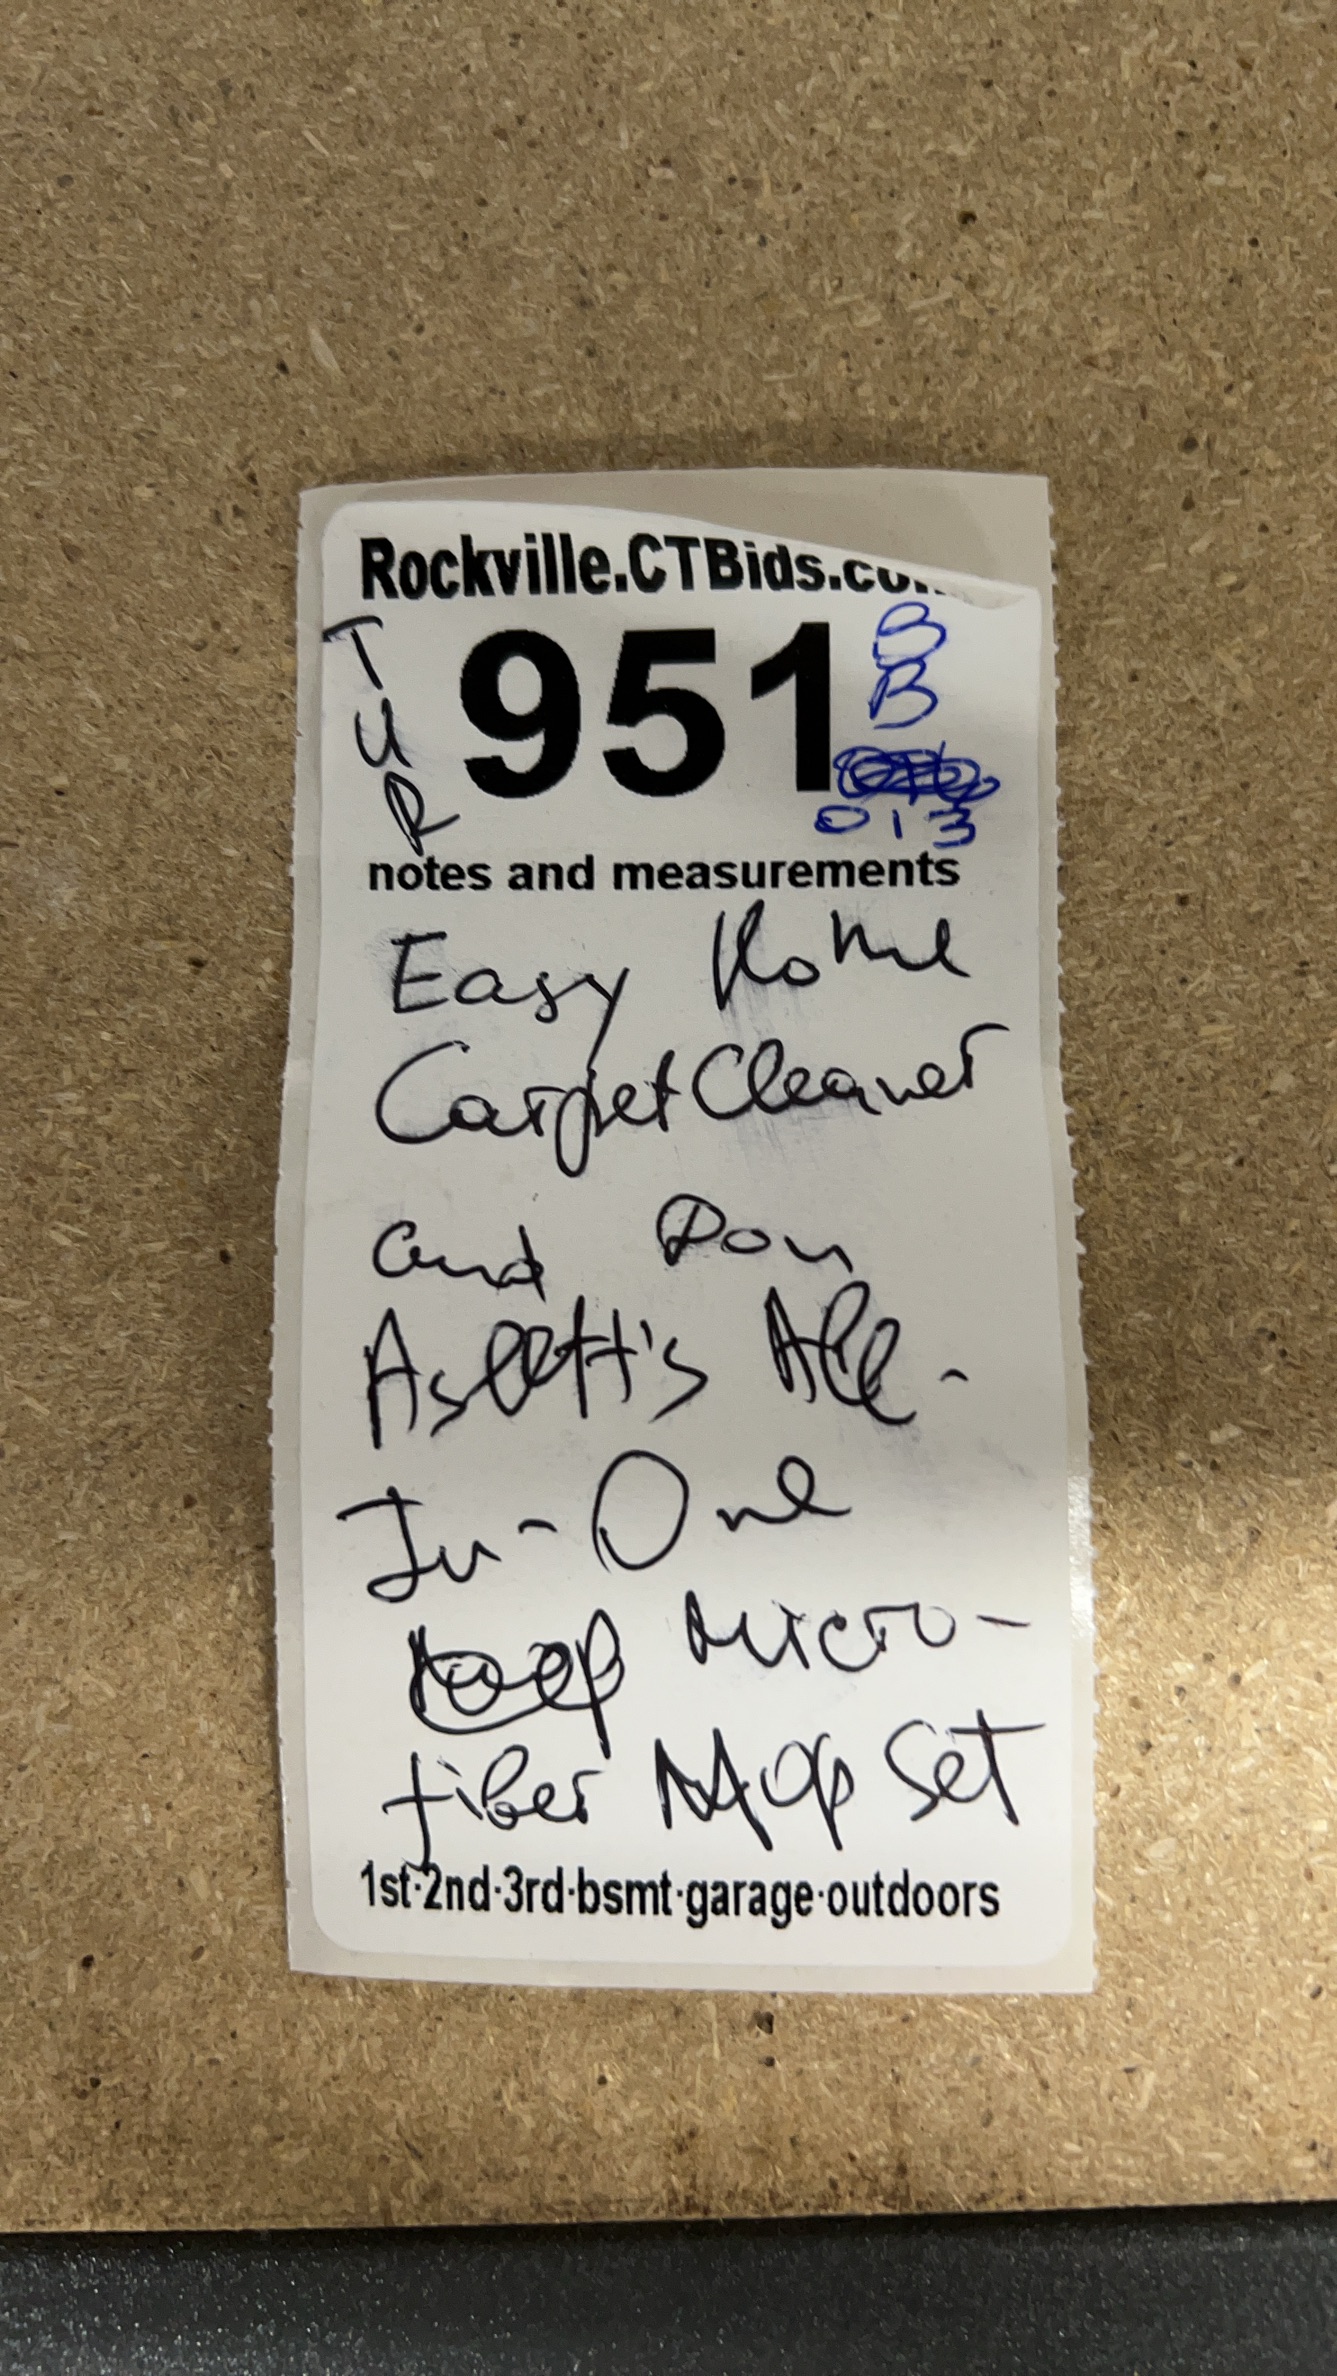 Rockville.CTBids.co
TUR
951
BB
013
notes and measurements
Easy Home
Carpet Cleaner
and Don
Aslett's All-
In-One
Micro-
fiber Mop Set
1st·2nd·3rd·bsmt·garage·outdoors